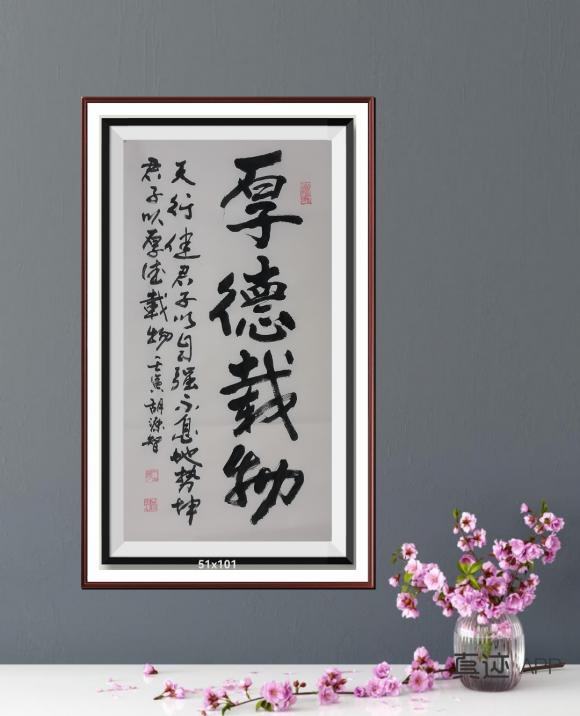 厚德载物
天行健君子以自强不息地势坤
君子以厚德载物壬寅胡源智
51x101
真迹 APP